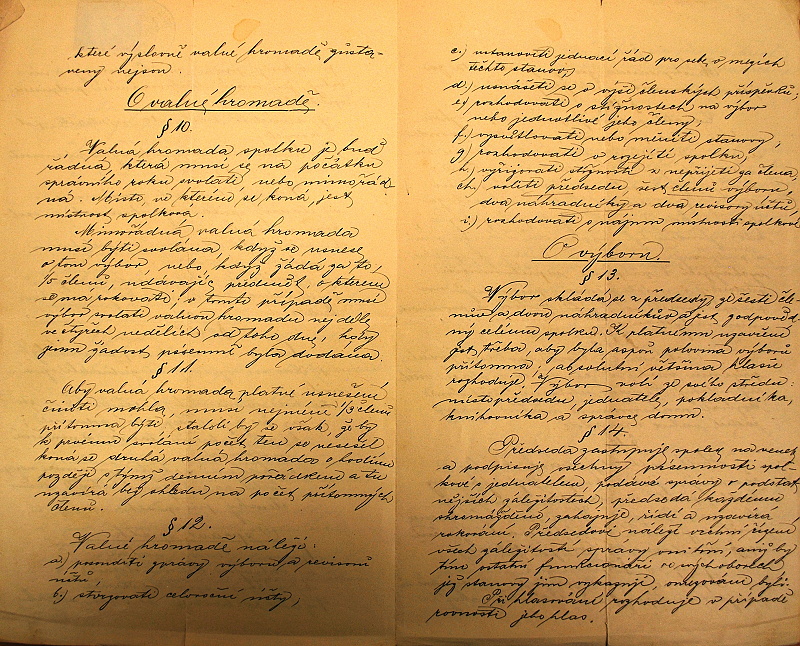 které výslovně valné hromadě zůsta-
veny nejsou.
O valné hromadě.
§ 10.
Valná hromada spolku je buď
řádná, která musí se na počátku
správního roku svolati, nebo mimořád-
ná. Místo, ve kterém se koná, jest
místnost spolková.
Mimořádná valná hromada
musí býti svolána, když se usnese
o tom výbor, nebo, když žádá za to,
1/5 členů, udávajíc předmět, o kterém
se má rokovati; v tomto případě musí
výbor svolati valnou hromadu nejdéle
ve čtyřech nedělích od toho dne, kdy
jemu žádost písemně byla dodána.
§ 11.
Aby valná hromada platné usnešení
činiti mohla, musí nejméně 1/3 členů
přítomna býti, stalo-li by se však, že by
k prvému svolání počet ten se nesešel
koná se druhá valná hromada o hodinu
později s týmž denním pořádkem a tu
uzavírá bez ohledu na počet přítomných
členů.
§ 12.
Valné hromadě náleží:
a.) posouditi zprávy výboru a revisorů
účtů,
b.) stvrzovati celoroční účty,
c.) ustanoviti jednací řád pro sebe v mezích
těchto stanov,
d.) usnášeti se o výši členských příspěvků;
e) rozhodovati o stížnostech na výbor
nebo jednotlivé jeho členy;
f.) vysvětlovati nebo měniti stanovy,
g) rozhodovati o rozejití spolku,
h.) vyřizovati stížnosti z nepřijetí za člena,
ch.) voliti předsedu, šest členů výboru,
dva náhradníky a dva revisory účtů,
i.) rozhodovati o nájmu místnosti spolkové
O výboru.
§ 13.
Výbor skládá se z předsedy, ze šesti čle-
nů a dvou náhradníků a jest zodpověd-
ný celému spolku. K platnému uzavření
jest třeba, aby byla aspoň polovina výborů
přítomna, absolutní většina hlasů
rozhoduje. Výbor volí ze svého středu:
místopředsedu, jednatele, pokladníka,
knihovníka a správce domu.
§ 14.
Předseda zastupuje spolek na venek
a podpisuje všechny písemnosti spol-
kové s jednatelem, podává zprávy o podstat-
nějších záležitostech, předsedá každému
shromáždění, zahajuje, řídí a uzavírá
rokování. Předsedovi náleží vrchní řízení
všech záležitostí správy vnitřní, aniž by
tím ostatní funkcionáři ve svých oborech
jež stanovy jim vykazují, omezováni byli.
Při hlasování rozhoduje v případě
rovnosti jeho hlas.